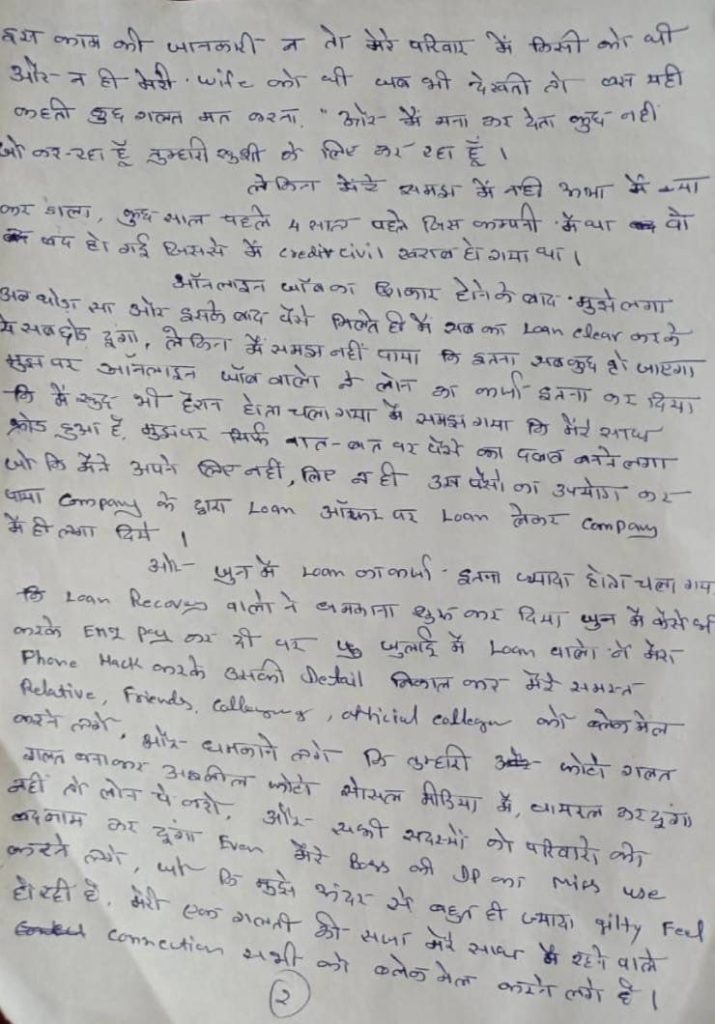 इस काम की जानकारी न तो मेरे परिवार में किसी को थी
और न ही मेरी wife को थी जब भी देखती तो बस यही
कहती कुछ गलत मत करना. "और मैं मना कर देता कुछ नहीं
जो कर रहा हूँ तुम्हारी खुशी के लिए कर रहा हूँ।
लेकिन मेरे समझ में नही आया मैं क्या
कर डाला, कुछ साल पहले 4 साल पहले जिस कम्पनी में था वो
बंद हो गई जिससे में credit civil खराब हो गया था।
ऑनलाइन जॉब का शिकार होने के बाद मुझे लगा
अब थोड़ा सा और इसके बाद पैसे मिलते ही मैं सब का Loan clear करके
ये सब छोड़ दूंगा, लेकिन मैं समझ नहीं पाया कि इतना सबकुछ हो जाएगा
मुझ पर ऑनलाइन जॉब वालो ने लोन का कर्जा इतना कर दिया
कि मैं खुद भी हैरान होता चला गया मैं समझ गया कि मेरे साथ
फ्रोड हुआ है. मुझपर सिर्फ बात-बात पर पैसे का दबाब बनने लगा
जो कि मैंने अपने लिए नहीं, लिए न ही उस पैसों का उपयोग कर
पाया Company के द्वारा Loan ऑफर पर Loan लेकर Company
में ही लगा दिये।
और जुन में Loan का कर्जा इतना ज्यादा होता चला गया
कि Loan Recovery वालो ने धमकाना शुरू कर दिया जुन में कैसे भी
करके EMI Pay कर दी पर जुलाई में Loan वालो ने मेरा
Phone Hack करके उसकी Detail निकाल कर मेरे समस्त
Relative, Friends, Colleagus, official collegue को ब्लेकमेल
करने लगे, और धमकाने लगे कि तुम्हारी फोटो गलत
गलत बनाकर अश्लील फोटो सोसल मीडिया में, वायरल कर दूंगा
नहीं तो लोन पे करो, और सभी सदस्यों को परिवारो को
बदनाम कर दूंगा Even मेरे Boss की DP का Miss use
करने लगे, जो कि मुझे अंदर से बहुत ही ज्यादा gilty Feel
हो रही है. मेरी एक गलती की सजा मेरे साथ में रहने वाले
connection सभी को ब्लेकमेल करने लगे है।
२